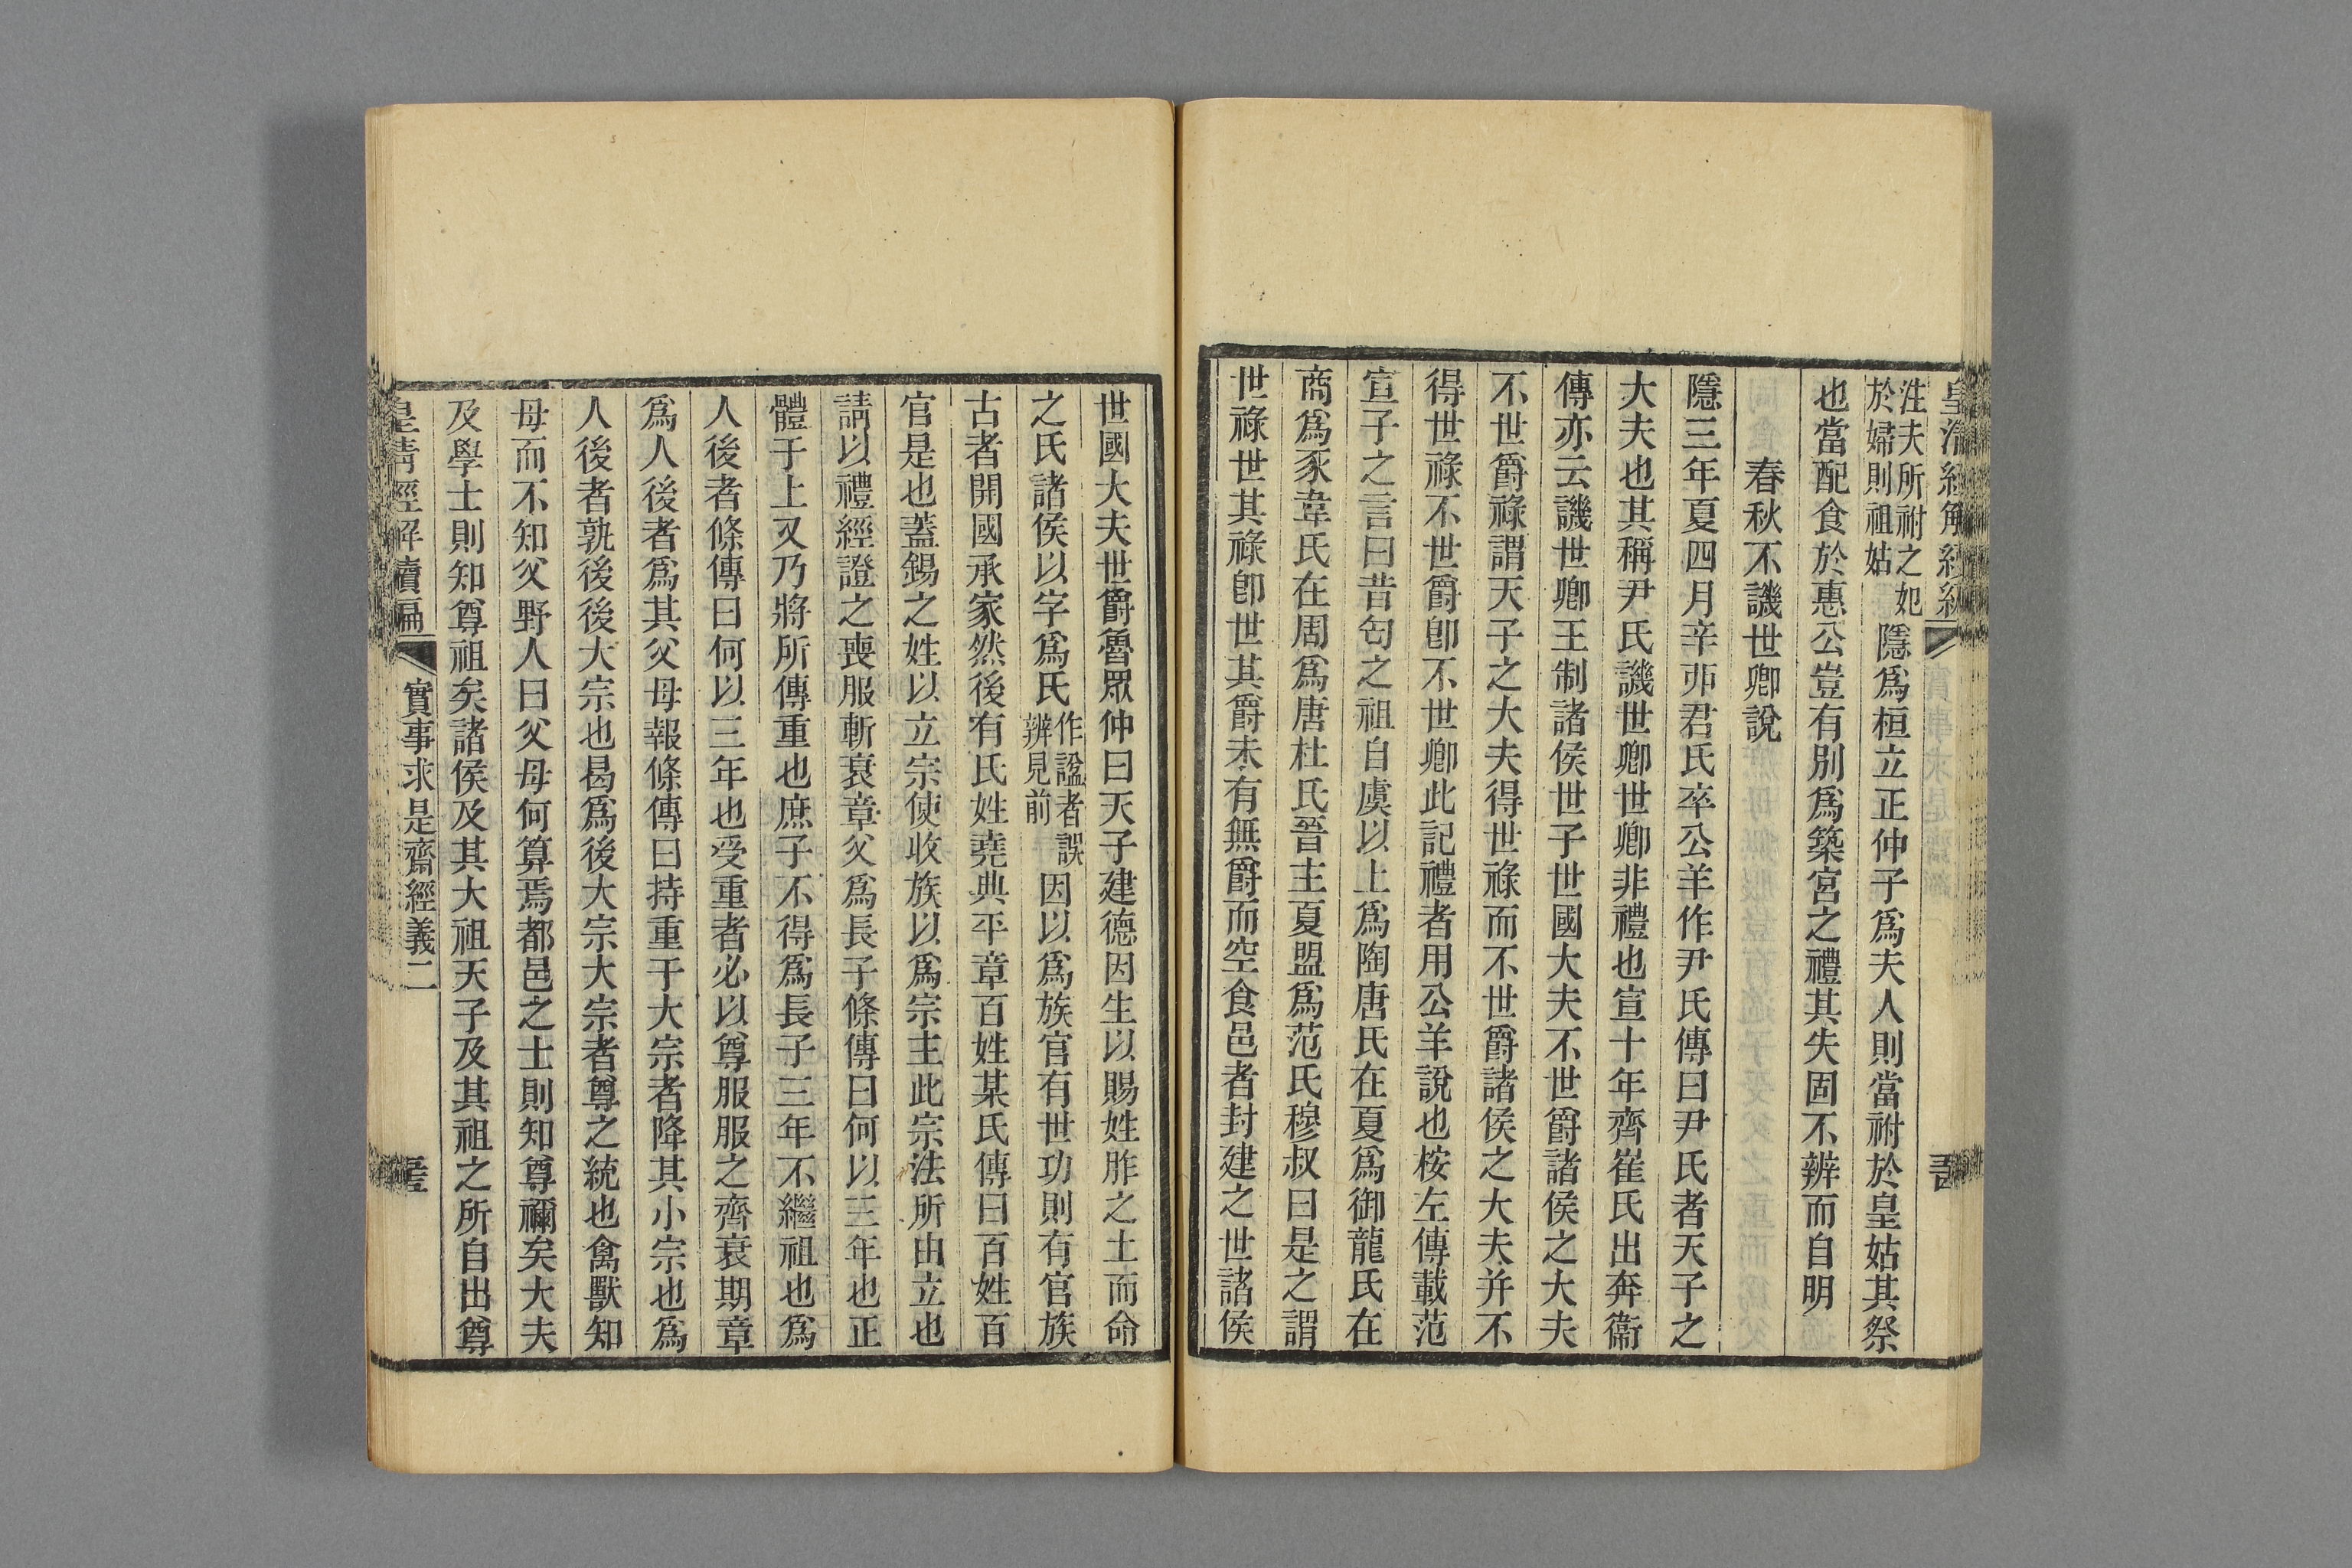 皇清經解續編
注夫所祔之妃於婦則祖姑隱爲桓立正仲子爲夫人則當祔於皇姑其祭
也當配食於惠公豈有別爲築宮之禮其失固不辨而自明
春秋不譏世卿說
隱三年夏四月辛丣君氏卒公羊作尹氏傳曰尹氏者天子之
大夫也其稱尹氏譏世卿世卿非禮也宣十年齊崔氏出奔衞
傳亦云譏世卿王制諸侯世子世國大夫不世爵諸侯之大夫
不世爵祿謂天子之大夫得世祿而不世爵諸侯之大夫并不
得世祿不世爵卽不世卿此記禮者用公羊說也桉左傳載范
宣子之言曰昔匄之祖自虞以上爲陶唐氏在夏爲御龍氏在
商爲豕韋氏在周爲唐杜氏晉主夏盟爲范氏穆叔曰是之謂
世祿世其祿卽世其爵未有無爵而空食邑者封建之世諸侯
世國大夫世爵魯眾仲曰天子建德因生以賜姓胙之土而命
之氏諸侯以字爲氏作諡者誤辨見前因以爲族官有世功則有官族
古者開國承家然後有氏姓堯典平章百姓某氏傳曰百姓百
官是也蓋錫之姓以立宗使收族以爲宗主此宗法所由立也
請以禮經證之喪服斬衰章父爲長子條傳曰何以三年也正
體于上又乃將所傳重也庶子不得爲長子三年不繼祖也爲
人後者條傳曰何以三年也受重者必以尊服服之齊衰期章
爲人後者爲其父母報條傳曰持重于大宗者降其小宗也爲
人後者孰後後大宗也曷爲後大宗大宗者尊之統也禽獸知
母而不知父野人曰父母何算焉都邑之士則知尊禰矣大夫
及學士則知尊祖矣諸侯及其大祖天子及其祖之所自出尊
皇清經解續編 實事求是齋經義二